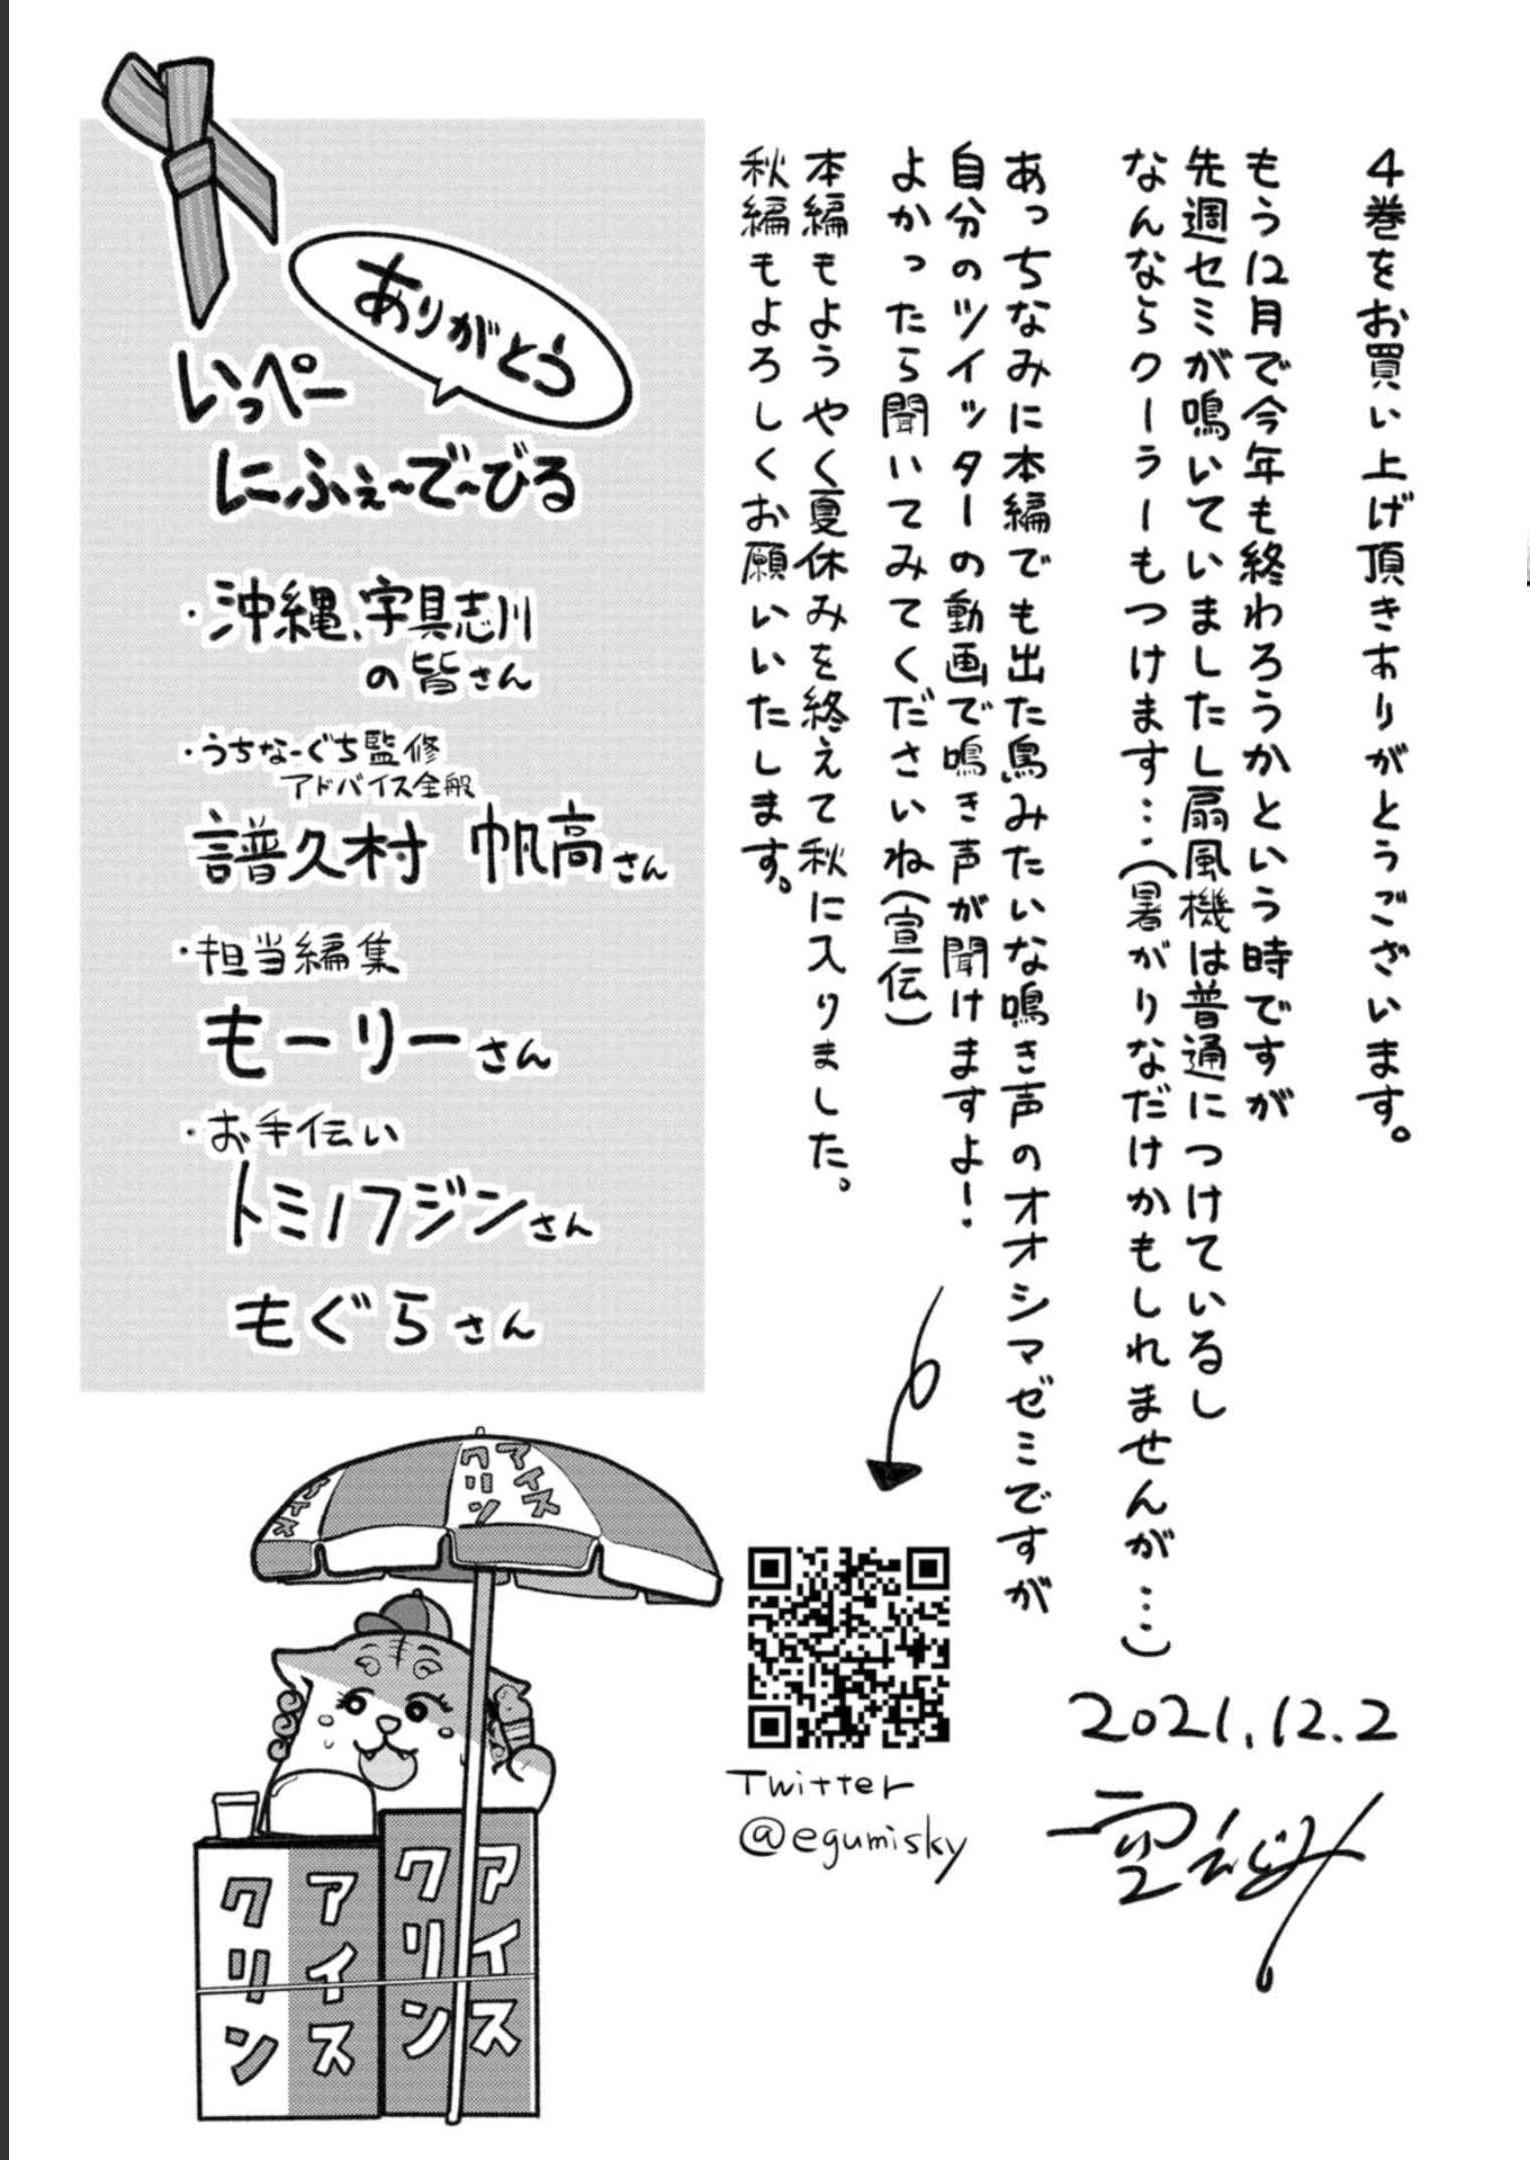 4巻をお買い上げ頂きありがとうございます。
もう12月で今年も終わろうかという時ですが
先週セミが鳴いていましたし扇風機は普通につけているし
なんならクーラーもつけます…(暑がりなだけかもしれませんが…)
あっちなみに本編でも出た鳥みたいな鳴き声のオオシマゼミですが
自分のツイッターの動画で鳴き声が聞けますよー!
よかったら聞いてみてくださいね(宣伝)
本編もようやく夏休みを終えて秋に入りました。
秋編もよろしくお願いいたします。
2021.12.2
空えぐみ
Twitter
@egumisky
ありがとう
いっぺー
にふぇ〜で〜びる
・沖縄、宇具志川
の皆さん
・うちなーぐち監修
アドバイス全般
譜久村 帆高さん
・担当編集
もーリーさん
・お手伝い
トミノフジンさん
もぐらさん
アイス
クリン
アイス
アイス
クリン
アイス
クリン